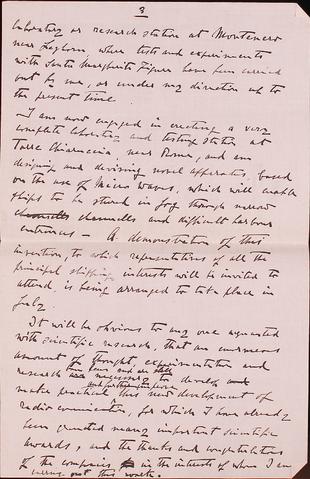 3
laboratory or research station at Montenero
near Leghorn, where tests and experiments
with Santa Margherita Ligure have been carried
out by me, or under my direction up to
the present time.
I am now engaged in erecting a very
complete laboratory and testing station at
Torre Chiaruccia, near Rome, and am
designing and devising novel apparatus, based
on the use of micro waves, which will enable
ships to be steered in fog through narrow
channels and difficult harbour
entrances — A demonstration of this
invention, to which representatives of all the
principal shipping interests will be invited to
attend, is being arranged to take place in
July.
It will be obvious to any one acquainted
with scientific research, that an enormous
amount of thought, experimentation and
research has been and are still
necessary to develop and
make practical this new development of
radio communication, for which I have already
been granted many important scientific
awards, and the thanks and congratulations
of the companies in the interests of whom I am
carrying out this work.